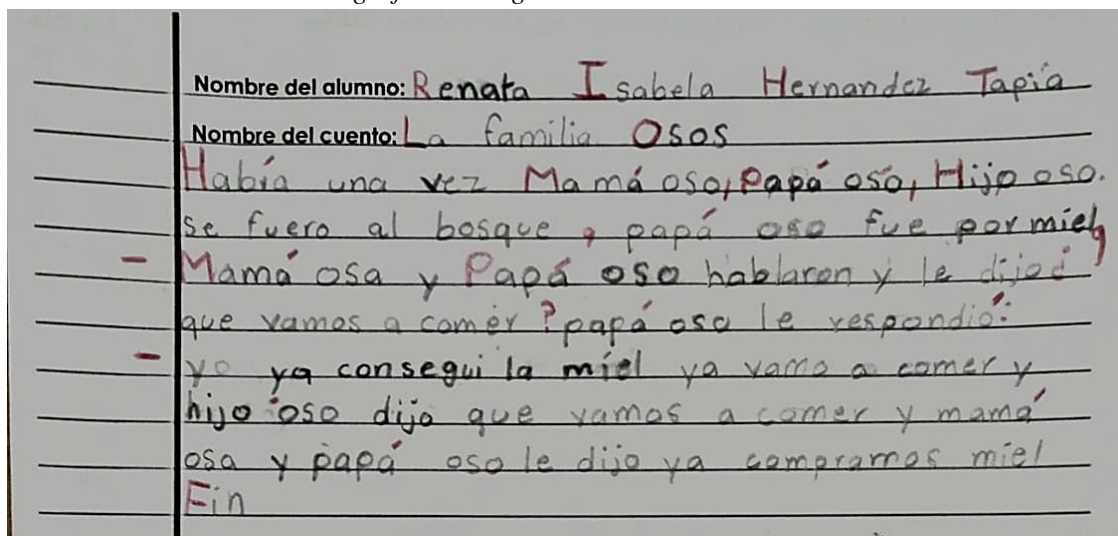 Nombre del alumno: Renata Isabela Hernandez Tapia
Nombre del cuento: La familia Osos
Había una vez Mamá oso, Papá oso, Hijo oso.
se fuero al bosque, papá oso fue por miel,
- Mamá osa y Papá oso hablaron y le dijo¿
que vamos a comer? papá oso le respondió:
- yo ya consegui la miel ya vamo a comer y
hijo oso dijo que vamos a comer y mamá
osa y papá oso le dijo ya compramos miel
Fin